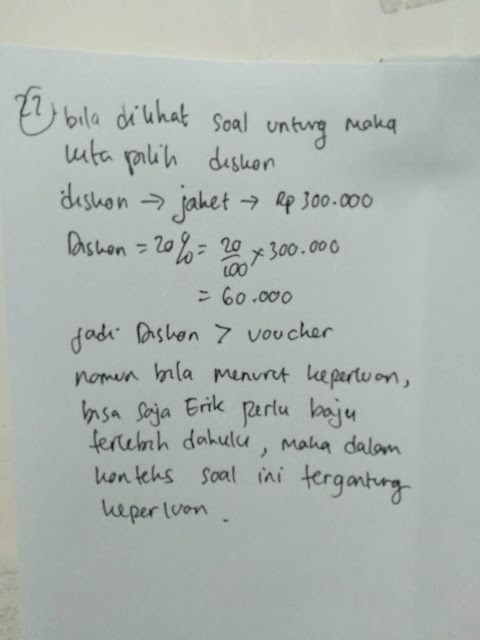 22) bila dilihat soal untung maka
kita pilih diskon
diskon → jaket → Rp 300.000
Diskon = 20% = 20/100 × 300.000
= 60.000
jadi Diskon > voucher
namun bila menurut keperluan,
bisa saja Erik perlu baju
terlebih dahulu, maka dalam
konteks soal ini tergantung
keperluan.